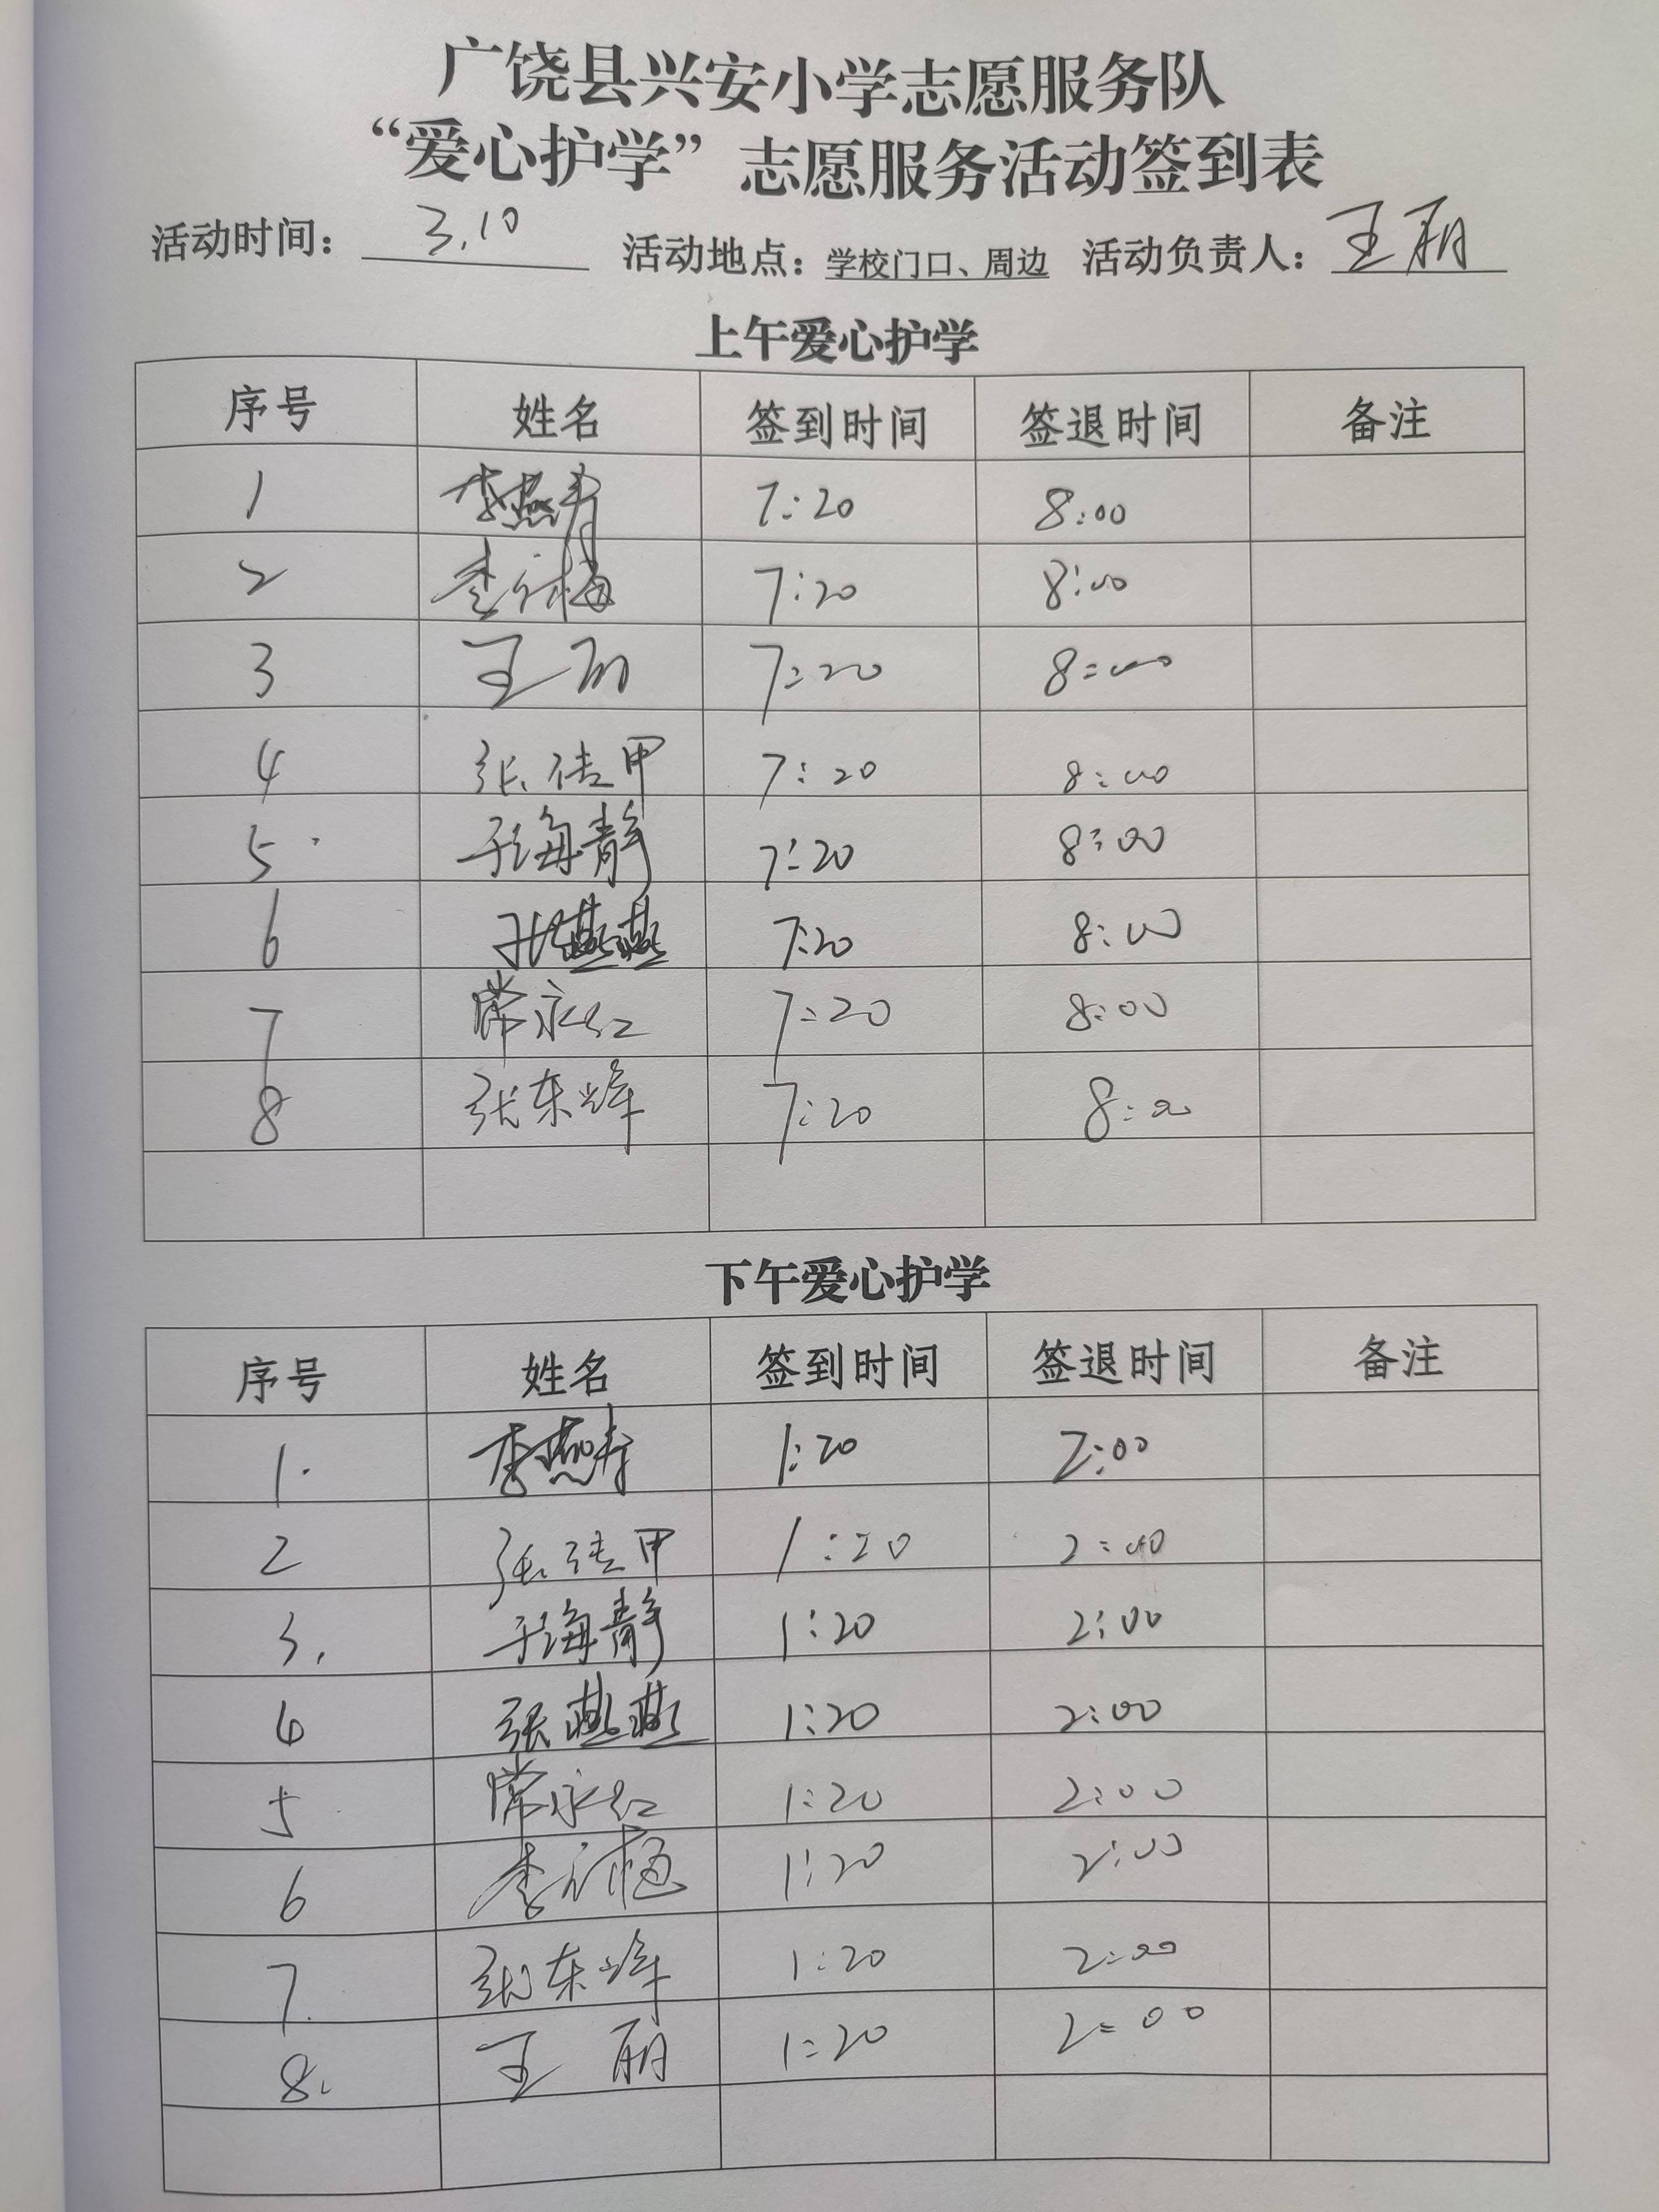 广饶县兴安小学志愿服务队
“爱心护学”志愿服务活动签到表
活动时间：3.10 活动地点：学校门口、周边 活动负责人：王丽
上午爱心护学
序号 姓名 签到时间 签退时间 备注
1 李燕青 7:20 8:00
2 李 梅 7:20 8:00
3 王丽 7:20 8:00
4 张 甲 7:20 8:00
5. 于海静 7:20 8:00
6 张燕燕 7:20 8:00
7 常永红 7:20 8:00
8 张东峰 7:20 8:00
下午爱心护学
序号 姓名 签到时间 签退时间 备注
1. 李燕青 1:20 2:00
2 张 甲 1:20 2:00
3. 于海静 1:20 2:00
4 张燕燕 1:20 2:00
5 常永红 1:20 2:00
6 李 梅 1:20 2:00
7. 张东峰 1:20 2:00
8. 王丽 1:20 2:00